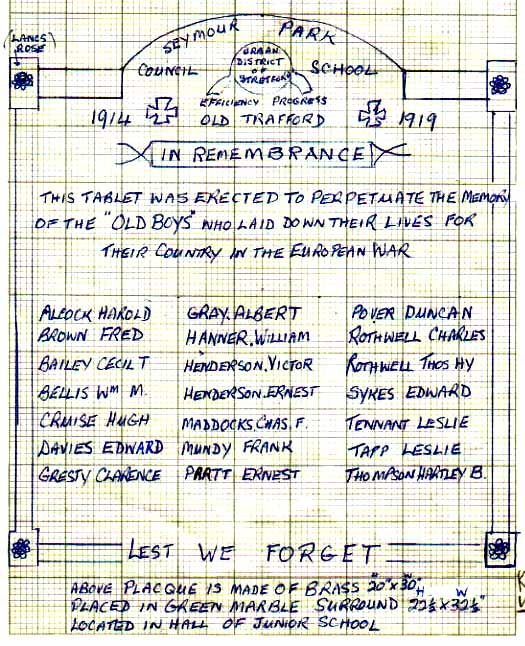 (LANCS ROSE)
SEYMOUR PARK
COUNCIL SCHOOL
URBAN
DISTRICT
OF
STRETFORD
EFFICIENCY PROGRESS
1914 OLD TRAFFORD 1919
IN REMEMBRANCE
THIS TABLET WAS ERECTED TO PERPETUATE THE MEMORY
OF THE "OLD BOYS" WHO LAID DOWN THEIR LIVES FOR
THEIR COUNTRY IN THE EUROPEAN WAR
ALCOCK HAROLD GRAY.ALBERT POVER DUNCAN
BROWN FRED HANNER.WILLIAM ROTHWELL CHARLES
BAILEY CECIL T HENDERSON.VICTOR ROTHWELL THOS HY
BELLIS WM M. HENDERSON.ERNEST SYKES EDWARD
CRUISE HUGH MADDOCKS.CHAS. F. TENNANT LESLIE
DAVIES EDWARD MUNDY FRANK TAPP LESLIE
GRESTY CLARENCE PRATT ERNEST THOMPSON HARTLEY B.
LEST WE FORGET
ABOVE PLACQUE IS MADE OF BRASS 20"H X 30"W
PLACED IN GREEN MARBLE SURROUND 22½"H X 32½"W
LOCATED IN HALL OF JUNIOR SCHOOL